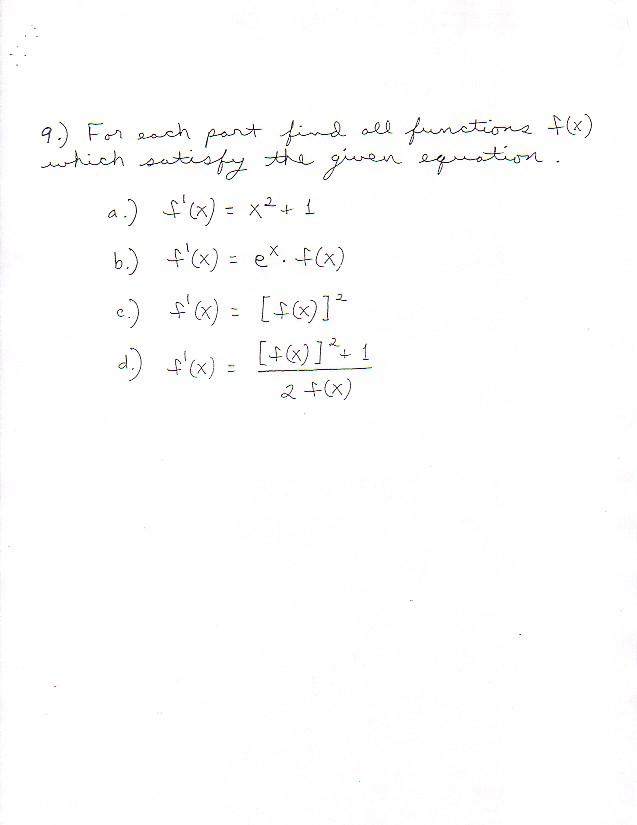 9.) For each part find all functions f(x)
which satisfy the given equation.
a.) f'(x) = x² + 1
b.) f'(x) = eˣ · f(x)
c.) f'(x) = [f(x)]²
d.) f'(x) = [f(x)]² + 1 / 2 f(x)